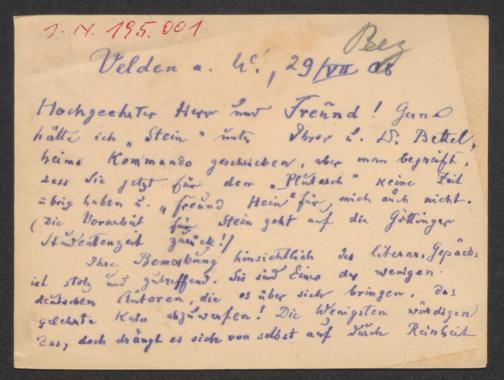 J. N. 195.001
Beez
Velden a. W., 29/VII 08
Hochgeehrter Herr und Freund! Gern
hätte ich „Stein" unter Ihrer u. D. Bettel,
heims Kommando geschrieben, aber man begreift,
dass Sie jetzt für den „Plutarch" keine Zeit
übrig haben u. „Freund Hein" für mich auch nicht.
(Die Vorarbeit für Stein geht auf die Göttinger
Studentenzeit zurück!)
Ihre Bemerkung hinsichtlich des literar. Gepäcks
ist stolz und zutreffend. Sie sind Einer der wenigen
deutschen Autoren, die es über sich bringen, das
gelehrte abzuwerfen! Die Wenigsten würdigen
das, doch drängt es sich von selbst auf durch Reinheit